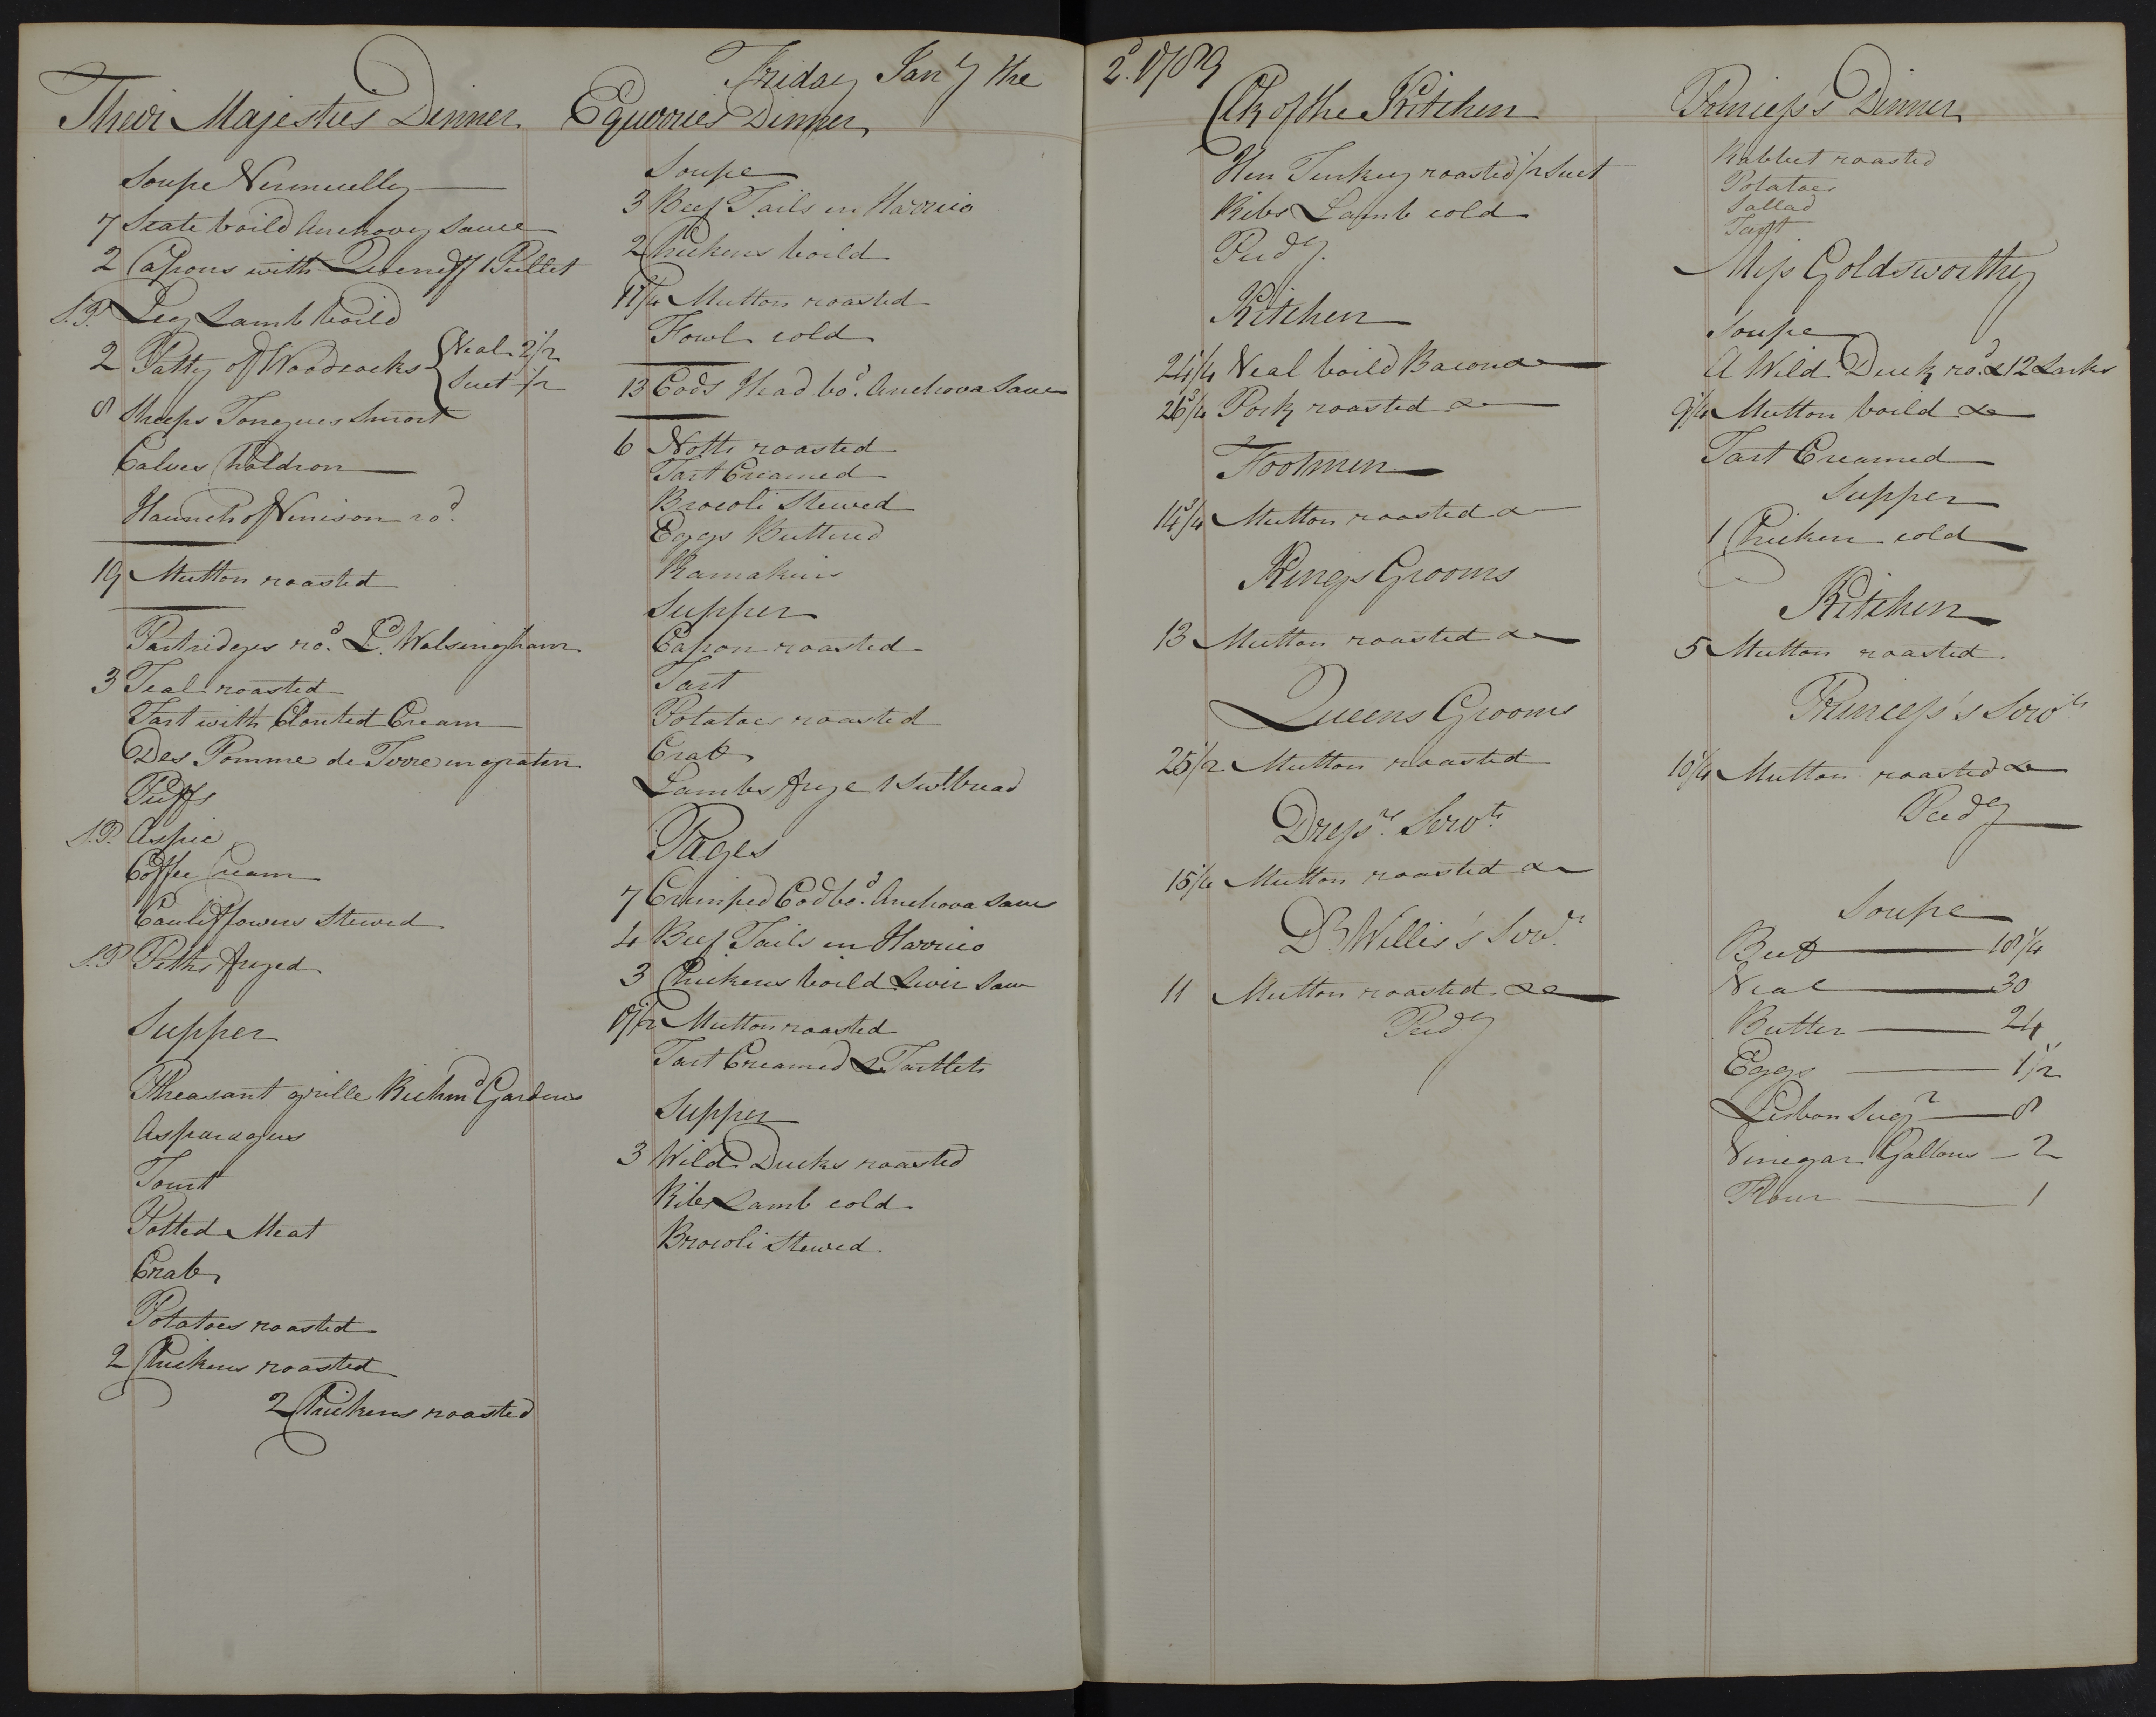 Friday Jany the 2d. 1789
Their Majesties Dinner
Soupe Vermuelly
7 Scate boild Anchovy Sauce
2 Capons with Queneff 1 Pullet
S.P. Leg Lamb boild
2 Patty of Woodcocks { Veal 2 1/2
Suet 1/2
8 Sheeps Tongues Smort
Calves Chaldron
Haunch of Venison rod.
19 Mutton roasted
Partridges rod. Ld. Walsingham
3 Teal roasted
Tart with Clouted Cream
Des Pomme de Terre en gratin
Puffs
S.P. Aspic
Coffee Cream
Cauliflowers Stewed
S.P. Piths fryed
Supper
Pheasant grille Richmd Gardens
Asparagus
Tourt
Potted Meat
Crab
Potatoes roasted
2 Chickens roasted
2 Chickens roasted
Equerries Dinner
Soupe
3 Beef Tails en Harrico
2 Chickens boild
Mutton roasted
Fowl cold
13 Cods Head bod. Anchova Sauce
6 Notts roasted
Tart Creamed
Brocoli Stewed
Eggs Buttered
Ramakins
Supper
Capon roasted
Tart
Potatoes roasted
Crab
Lambs frye 1 Swtbread
Pages
7 Crimped Cod bod. Anchova Sauce
4 Beef Tails en Harrico
3 Chickens boild Liver Sauce
Mutton roasted
Tart Creamed & Tartlets
Supper
3 Wild Ducks roasted
Ribs Lamb cold
Brocoli Stewed
Clk of the Kitchen
Hen Turkey roasted 1/2 Suet
Ribs Lamb cold
Pudg.
Kitchen
24 1/4 Veal boild Bacon &
26 3/4 Pork roasted &
Footmen
14 3/4 Mutton roasted &
Kings Grooms
13 Mutton roasted &
Queens Grooms
25 1/2 Mutton roasted
Dressrs Servts
15 1/4 Mutton roasted &
Dr Willis's Servts
11 Mutton roasted &
Pudg
Princess's Dinner
Rabbet roasted
Potatoes
Sallad
Tart
Miss Goldsworthy
Soupe
A Wild Duck rod. & 12 Larks
9 1/4 Mutton boild &
Tart Creamed
Supper
1 Chicken cold
Kitchen
5 Mutton roasted
Princess's Servts
Mutton roasted &
Pudg
Soupe
Beef 18 1/4
Veal 30
Butter 24
Eggs 1 1/2
Lisbon Sugr 8
Vinegar Gallons 2
Flour 1